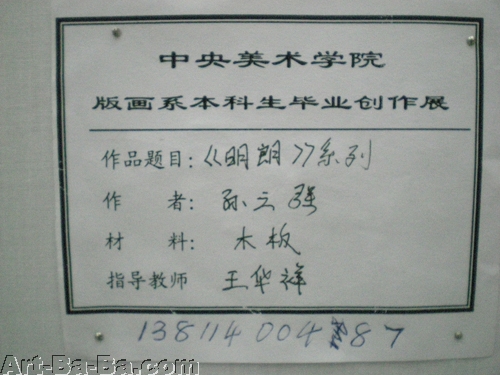 中央美术学院
版画系本科生毕业创作展
作品题目：《明朗》系列
作 者：孙云强
材 料：木板
指导教师 王华祥
13811400487
Art-Ba-Ba.com